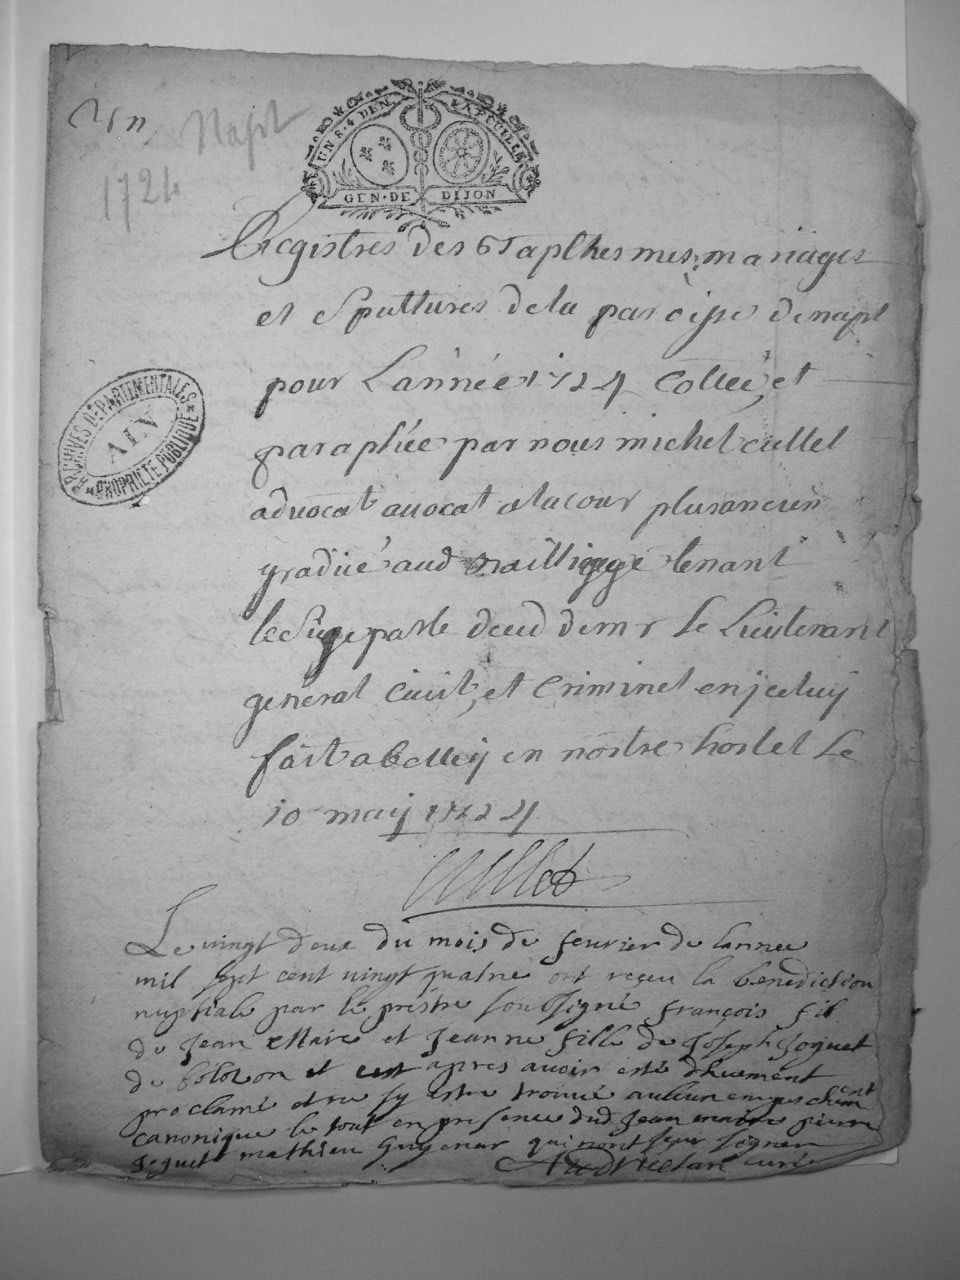 Un
Napt
1724
UN S. 4 DEN. LA FEUILLE
GEN. DE DIJON
ARCHIVES DÉPARTEMENTALES
AIN
PROPRIÉTÉ PUBLIQUE
Registres des Bapthesmes mariages
et Sepultures de la paroisse de napt
pour Lannée 1724 Cottée, et
paraphée par nous michel cullet
advocat avocat a la cour plus ancien
gradué aud bailliage tenant
le Siege par le deced de mr le Lieutenant
general Civil, et Criminel en jceluÿ
fait a belleÿ en nostre hostel le
10 maÿ 1724
Cullet
Le vingt deux du mois de feuvrier de lannee
mil sept cent vingt quatre ont reçeu la benediction
nuptiale par le prêstre soussigné françois fil
de Jean Maire et Jeanne fille de Joseph Joguet
de bolozon et apres avoir esté dhuement
proclamé et ne sy estre trouvé aulcun empeschement
canonique le tout en presence dud Jean maire pierre
Joguet mathieu qui nont sçeu signer
curé